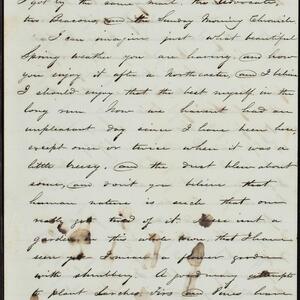 I got by the same mail, the Advocate,
two Beacons, and the Sunday Morning Chronicle
I can imagine just what beautiful
Spring weather you are having, and how
you enjoy it after a Northeaster, and I believe
I should enjoy that the best myself in the
long run. Now we havent had an
unpleasant day since I have been here,
except once or twice when it was a
little breezy, and the dust blew about
some, and don't you believe that
human nature is such that one
really gets tired of it. There isnt a
garden in this whole town that I have
seen yet, I mean a flower garden
with shrubbery. A good many attempts
to plant Larches, Firs and Pines have